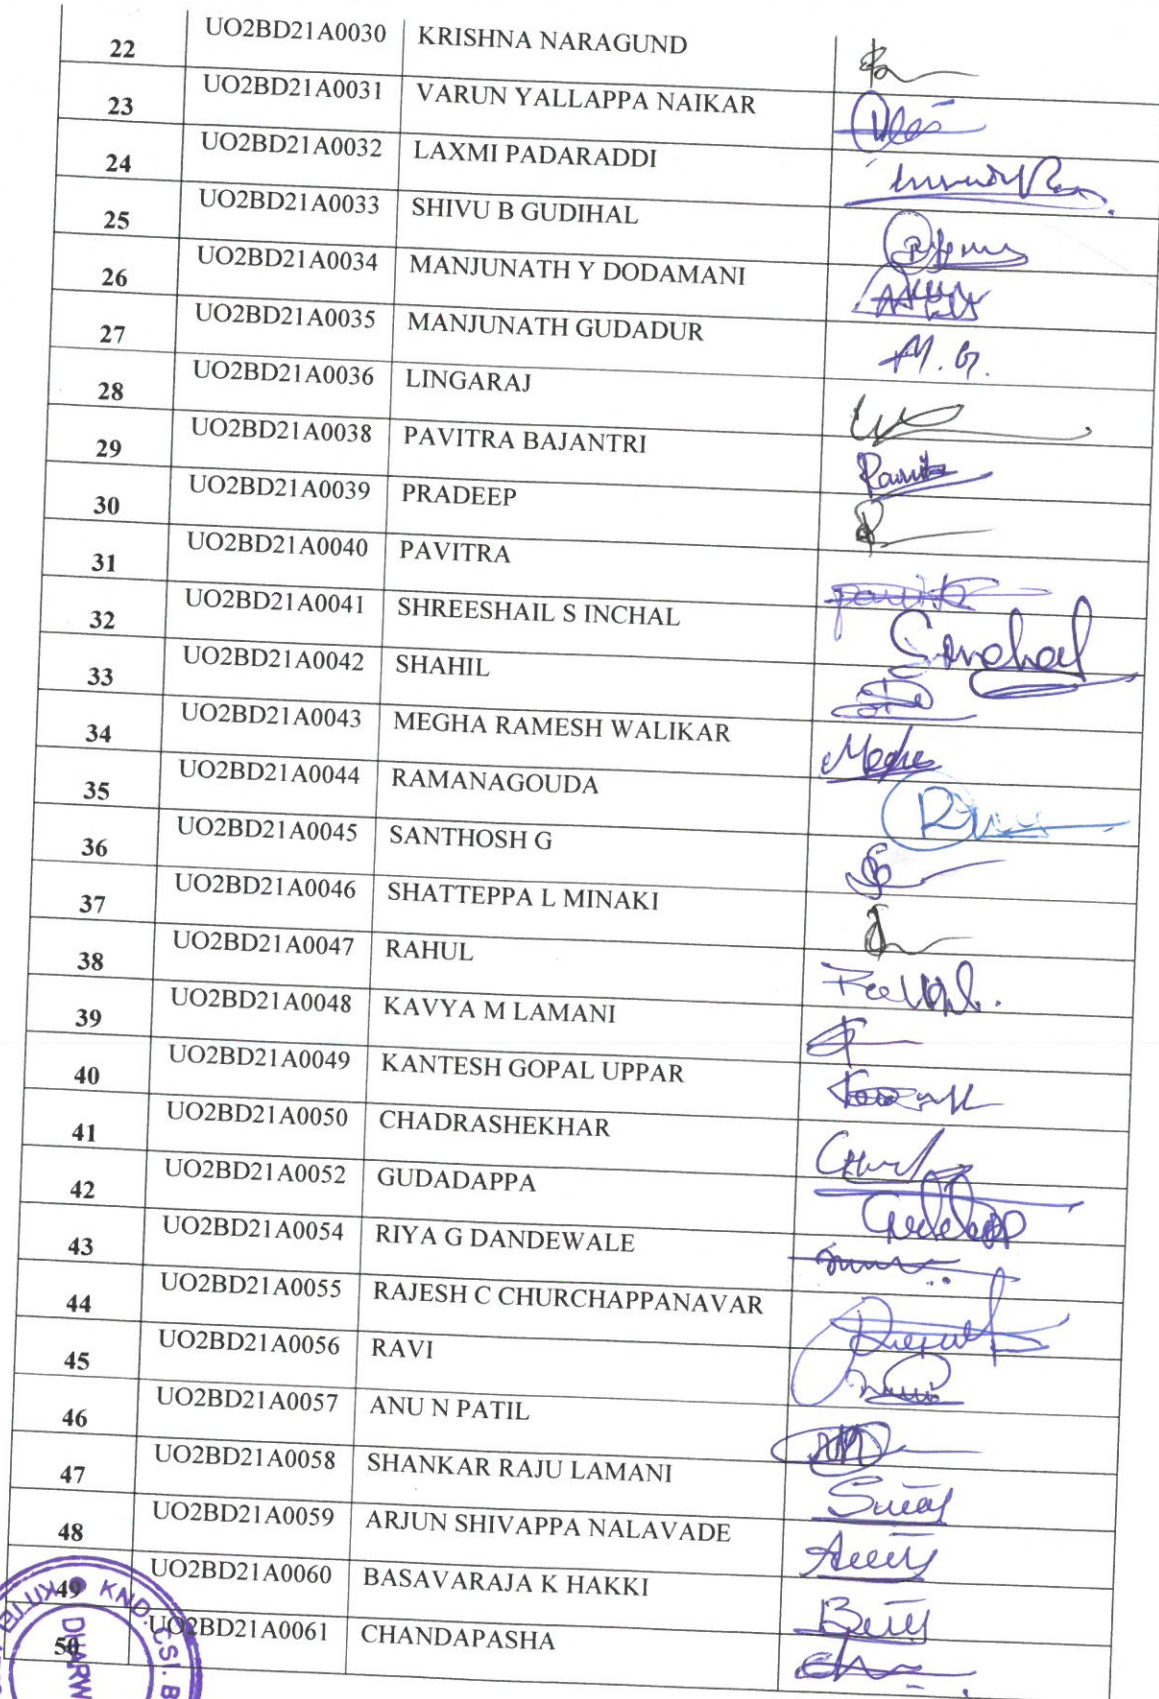 22 UO2BD21A0030 KRISHNA NARAGUND
23 UO2BD21A0031 VARUN YALLAPPA NAIKAR
24 UO2BD21A0032 LAXMI PADARADDI
25 UO2BD21A0033 SHIVU B GUDIHAL
26 UO2BD21A0034 MANJUNATH Y DODAMANI
27 UO2BD21A0035 MANJUNATH GUDADUR M.G.
28 UO2BD21A0036 LINGARAJ
29 UO2BD21A0038 PAVITRA BAJANTRI
30 UO2BD21A0039 PRADEEP
31 UO2BD21A0040 PAVITRA
32 UO2BD21A0041 SHREESHAIL S INCHAL
33 UO2BD21A0042 SHAHIL
34 UO2BD21A0043 MEGHA RAMESH WALIKAR
35 UO2BD21A0044 RAMANAGOUDA
36 UO2BD21A0045 SANTHOSH G
37 UO2BD21A0046 SHATTEPPA L MINAKI
38 UO2BD21A0047 RAHUL
39 UO2BD21A0048 KAVYA M LAMANI
40 UO2BD21A0049 KANTESH GOPAL UPPAR
41 UO2BD21A0050 CHADRASHEKHAR
42 UO2BD21A0052 GUDADAPPA
43 UO2BD21A0054 RIYA G DANDEWALE
44 UO2BD21A0055 RAJESH C CHURCHAPPANAVAR
45 UO2BD21A0056 RAVI
46 UO2BD21A0057 ANU N PATIL
47 UO2BD21A0058 SHANKAR RAJU LAMANI
48 UO2BD21A0059 ARJUN SHIVAPPA NALAVADE
49 UO2BD21A0060 BASAVARAJA K HAKKI
50 UO2BD21A0061 CHANDAPASHA